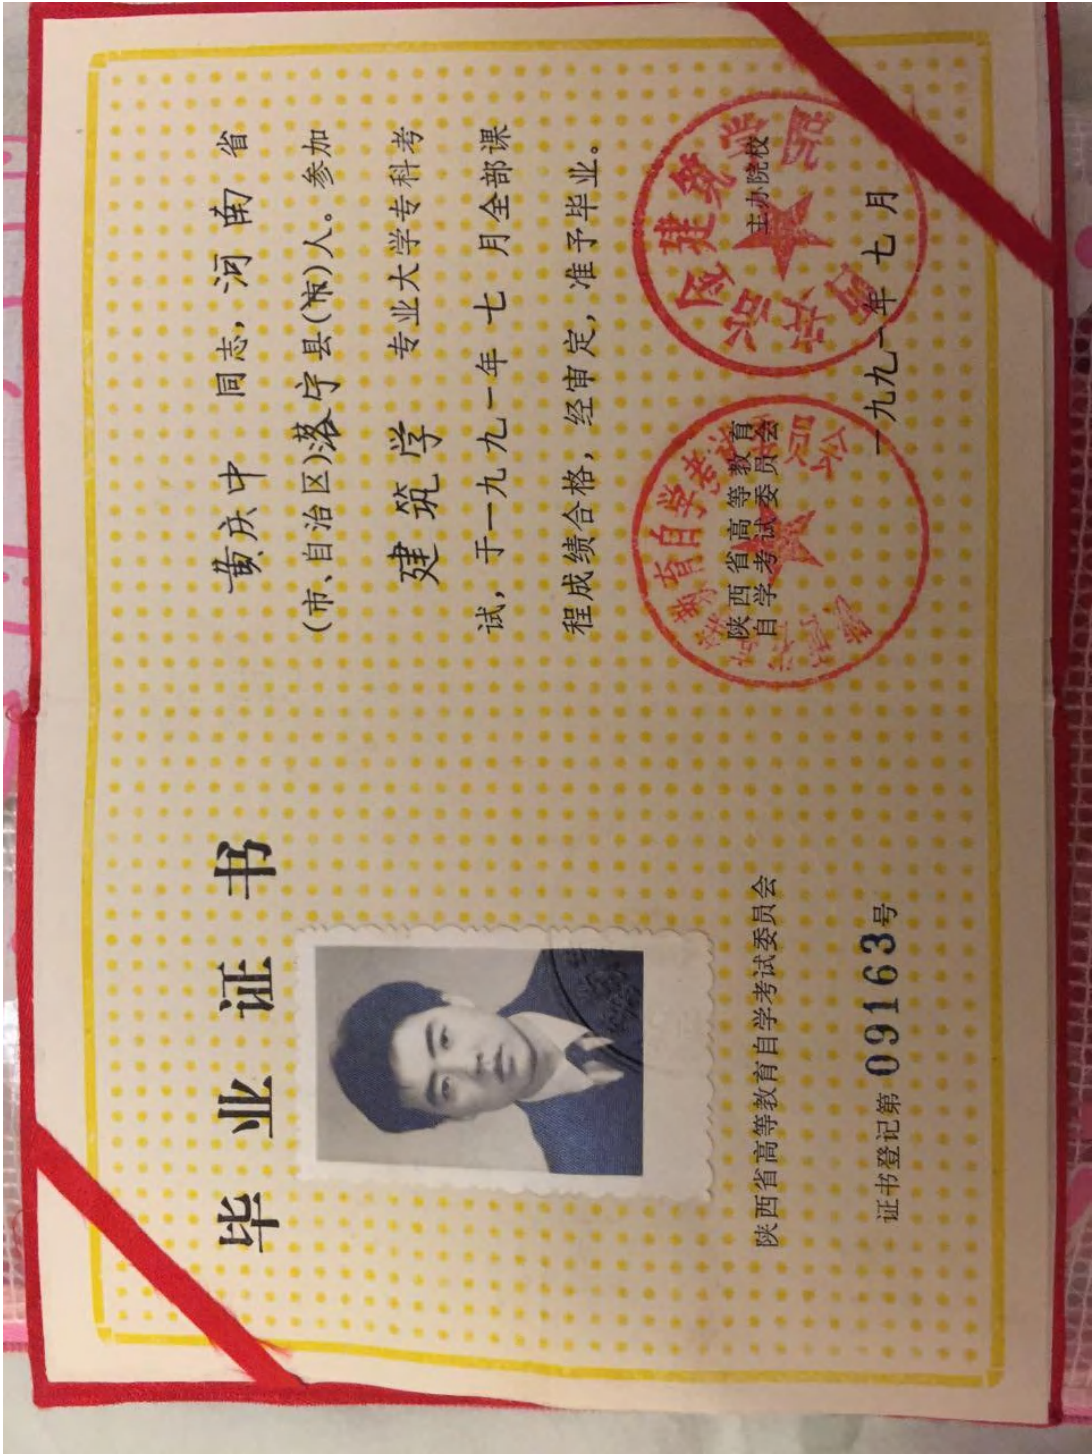 毕业证书
陕西省高等教育自学考试委员会
证书登记第09163号
黄庆中 同志，河南省
(市、自治区)洛宁县(市)人。参加
建筑学 专业大学专科考
试，于一九九一年七月全部课
程成绩合格，经审定，准予毕业。
陕西省高等教育
自学考试委员会
主办院校
一九九一年七月